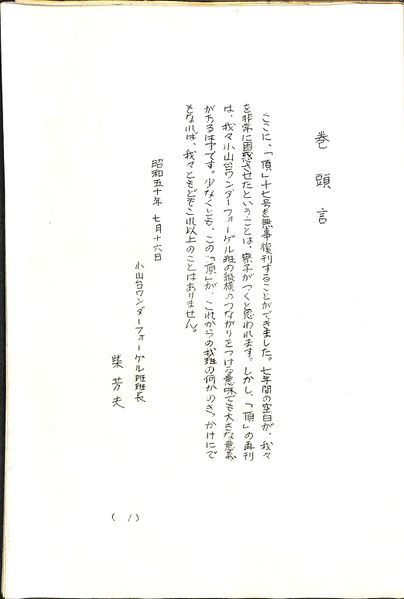 巻頭言
ここに、「頂」十七号を無事復刊することができました。七年間の空白が、我々
を非常に困惑させたということは、察しがつくと思われます。しかし、「頂」の再刊
は、我々小山台ワンダーフォーゲル班の縦横のつながりをつける意味でも大きな意義
があるはずです。少なくとも、この「頂」が、これからの我班の何かのきっかけにで
もなれば、我々ともどもこれ以上のことはありません。
昭和五十年 七月十六日
小山台ワンダーフォーゲル班班長
柴 芳夫
(1)